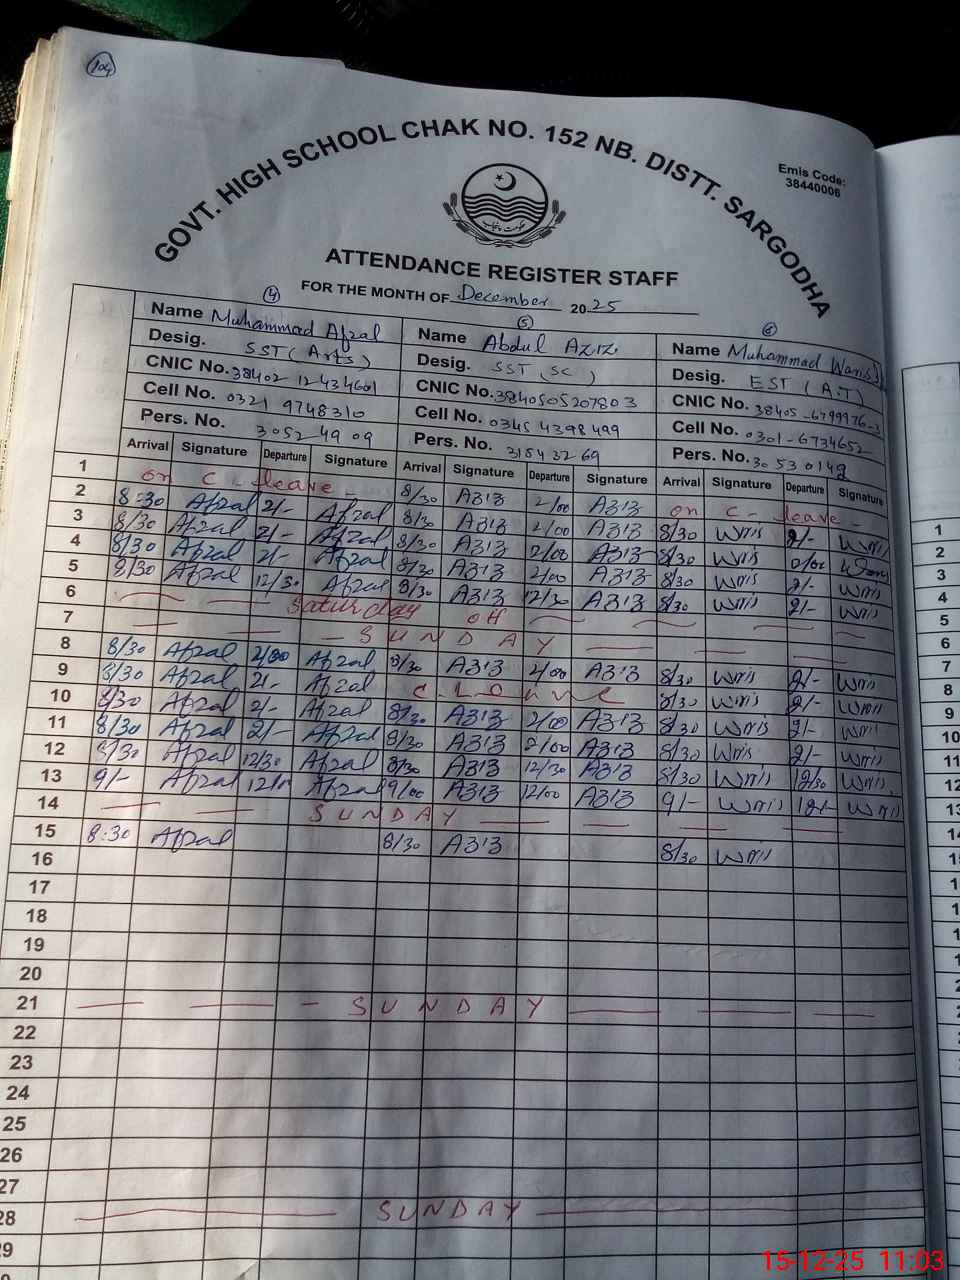 104
GOVT. HIGH SCHOOL CHAK NO. 152 NB. DISTT. SARGODHA
Emis Code:
38440006
ATTENDANCE REGISTER STAFF
FOR THE MONTH OF December 2025
4 5 6
Name Muhammad Afzal Name Abdul Aziz Name Muhammad Waris
Desig. SST (Arts) Desig. SST (SC) Desig. EST (A.T)
CNIC No. 38402 12434601 CNIC No. 3840505207803 CNIC No. 38405-6799976-3
Cell No. 0321 9748310 Cell No. 0345 4398499 Cell No. 0301-6734652
Pers. No. 30524909 Pers. No. 31543269 Pers. No. 30530148
Arrival Signature Departure Signature Arrival Signature Departure Signature Arrival Signature Departure Signature
1 on C-leave- 8/30 Aziz 2/00 Aziz on C-leave-
2 8:30 Afzal 2/- Afzal 8/30 Aziz 2/00 Aziz 8/30 Wris 2/- Wris
3 8/30 Afzal 2/- Afzal 8/30 Aziz 2/00 Aziz 8/30 Wris
4 8/30 Afzal 2/- Afzal 8/30 Aziz 2/00 Aziz 8/30 Wris 2/- Wris
5 8/30 Afzal 12/30 Afzal 8/30 Aziz 12/30 Aziz 8/30 Wris 2/- Wris
6 Saturday off
7 - SUNDAY
8 8/30 Afzal 2/00 Afzal 8/30 Aziz 2/00 Aziz 8/30 Wris 2/- Wris
9 8/30 Afzal 2/- Afzal C. Leave 8/30 Wris 2/- Wris
10 8/30 Afzal 2/- Afzal 8/30 Aziz 2/00 Aziz 8/30 Wris 2/- Wris
11 8/30 Afzal 2/- Afzal 8/30 Aziz 2/00 Aziz 8/30 Wris 2/- Wris
12 8/30 Afzal 12/30 Afzal 8/30 Aziz 12/30 Aziz 8/30 Wris 12/30 Wris
13 9/- Afzal Afzal 9/00 Aziz 12/00 Aziz 9/- Wris 12/- Wris
14 SUNDAY
15 8:30 Afzal 8/30 Aziz 8/30 Wris
16
17
18
19
20
21 - SUNDAY
22
23
24
25
26
27
28 SUNDAY
29
1
2
3
4
5
6
7
8
9
10
11
12
13
14
15-12-25 11:03